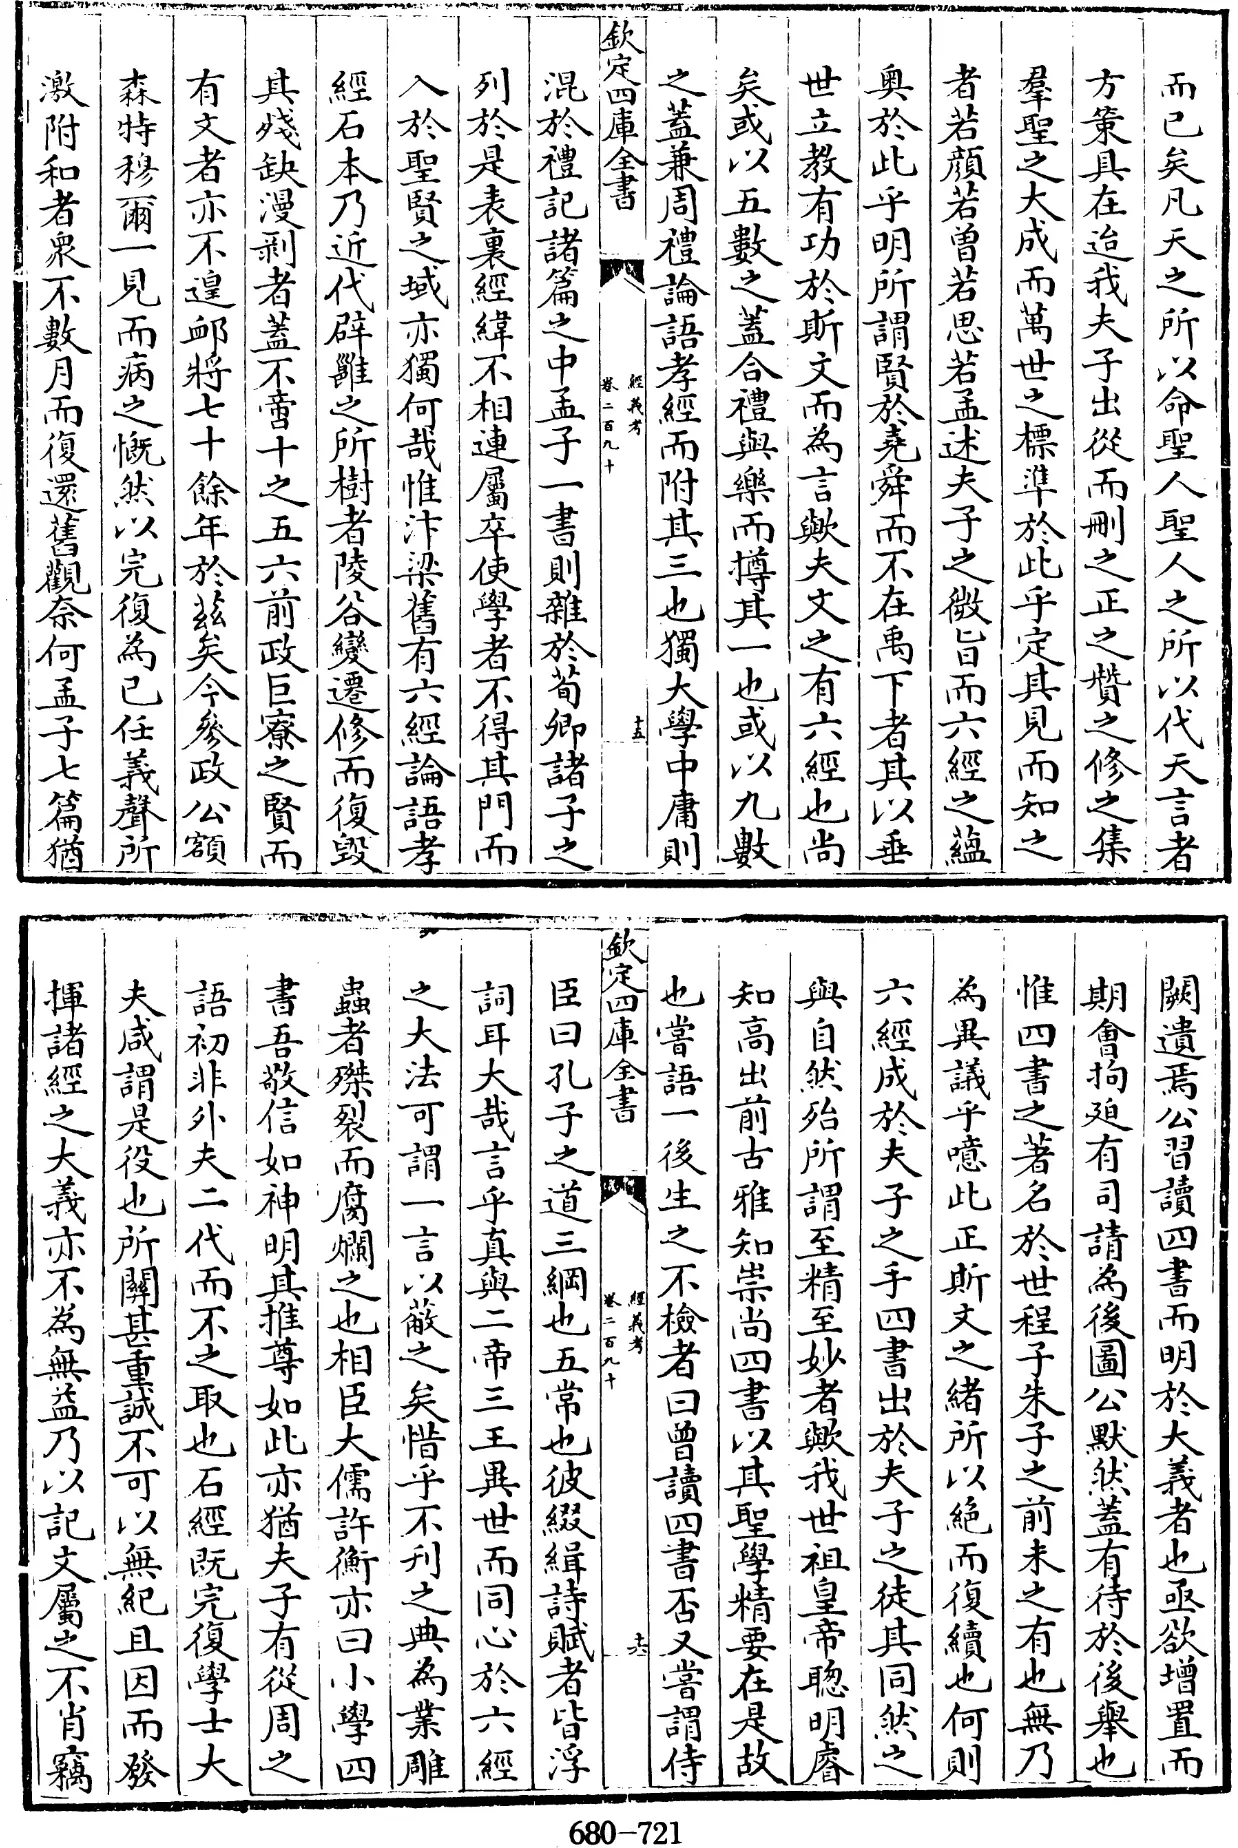 而已矣凡天之所以命聖人聖人之所以代天言者
方策具在迨我夫子出從而刪之正之贊之修之集
羣聖之大成而萬世之標準於此乎定其見而知之
者若顏若曾若思若孟述夫子之微旨而六經之蘊
奥於此乎明所謂賢於堯舜而不在禹下者其以垂
世立教有功於斯文而為言歟夫文之有六經也尚
矣或以五數之蓋合禮與樂而摶其一也或以九數
之蓋兼周禮論語孝經而附其三也獨大學中庸則
欽定四庫全書
經義考
卷二百九十
十五
混於禮記諸篇之中孟子一書則雜於荀卿諸子之
列於是表裏經緯不相連屬卒使學者不得其門而
入於聖賢之域亦獨何哉惟汴梁舊有六經論語孝
經石本乃近代辟雝之所樹者陵谷變遷修而復毀
其殘缺漫剥者蓋不啻十之五六前政巨寮之賢而
有文者亦不遑䘏將七十餘年於茲矣今參政公額
森特穆爾一見而病之慨然以完復為已任義聲所
激附和者衆不數月而復還舊觀奈何孟子七篇猶
闕遺焉公習讀四書而明於大義者也亟欲增置而
期會拘廹有司請為後圖公默然蓋有待於後舉也
惟四書之著名於世程子朱子之前未之有也無乃
為異議乎噫此正斯文之緒所以絶而復續也何則
六經成於夫子之手四書出於夫子之徒其同然之
與自然殆所謂至精至妙者歟我世祖皇帝聰明睿
知高出前古雅知崇尚四書以其聖學精要在是故
也嘗語一後生之不檢者曰曾讀四書否又嘗謂侍
欽定四庫全書
經義考
卷二百九十
十六
臣曰孔子之道三綱也五常也彼綴緝詩賦者皆浮
詞耳大哉言乎真與二帝三王異世而同心於六經
之大法可謂一言以蔽之矣惜乎不刋之典為業雕
蟲者磔裂而腐爛之也相臣大儒許衡亦曰小學四
書吾敬信如神明其推尊如此亦猶夫子有從周之
語初非外夫二代而不之取也石經既完復學士大
夫咸謂是役也所關甚重誠不可以無紀且因而發
揮諸經之大義亦不為無益乃以記文屬之不肖竊
680-721